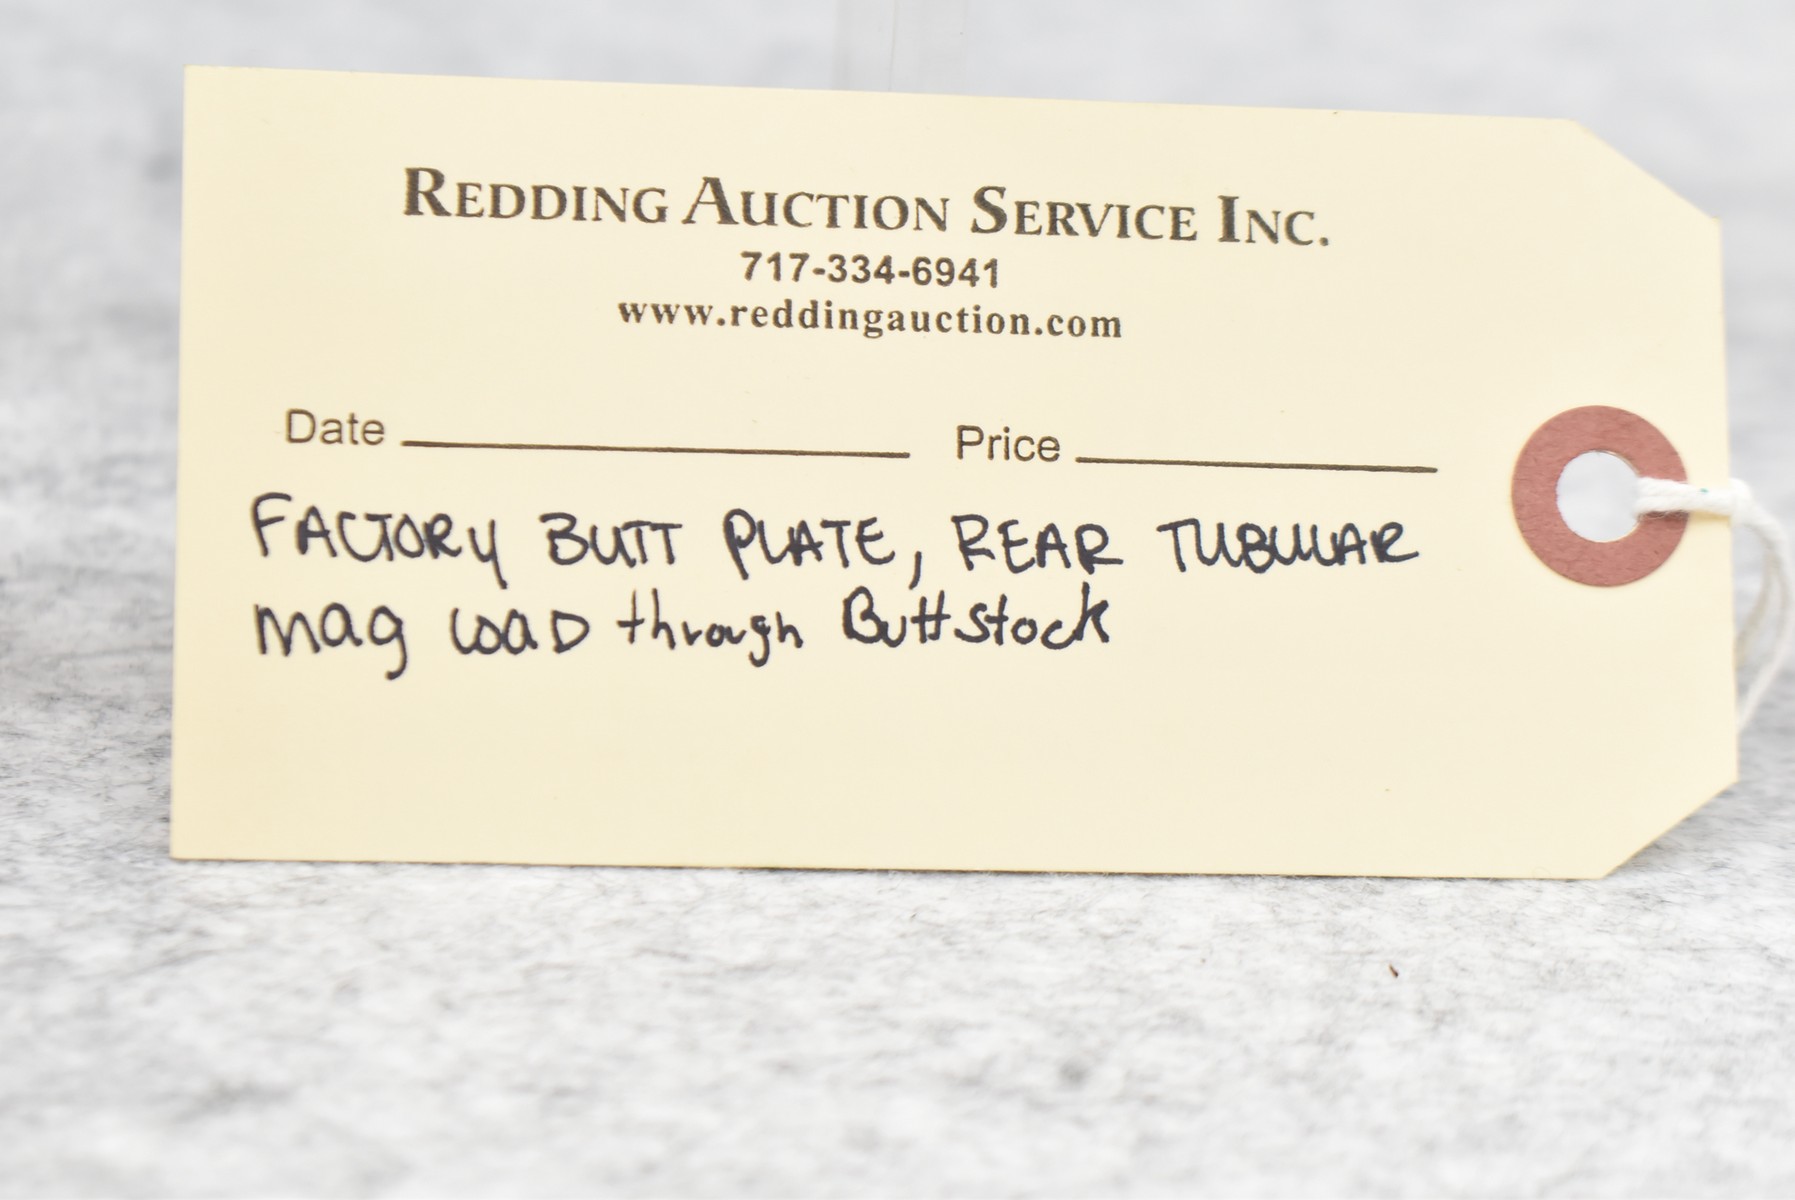 REDDING AUCTION SERVICE INC.
717-334-6941
www.reddingauction.com
Date Price
FACTORY BUTT PLATE, REAR TUBULAR
mag LOAD through Buttstock